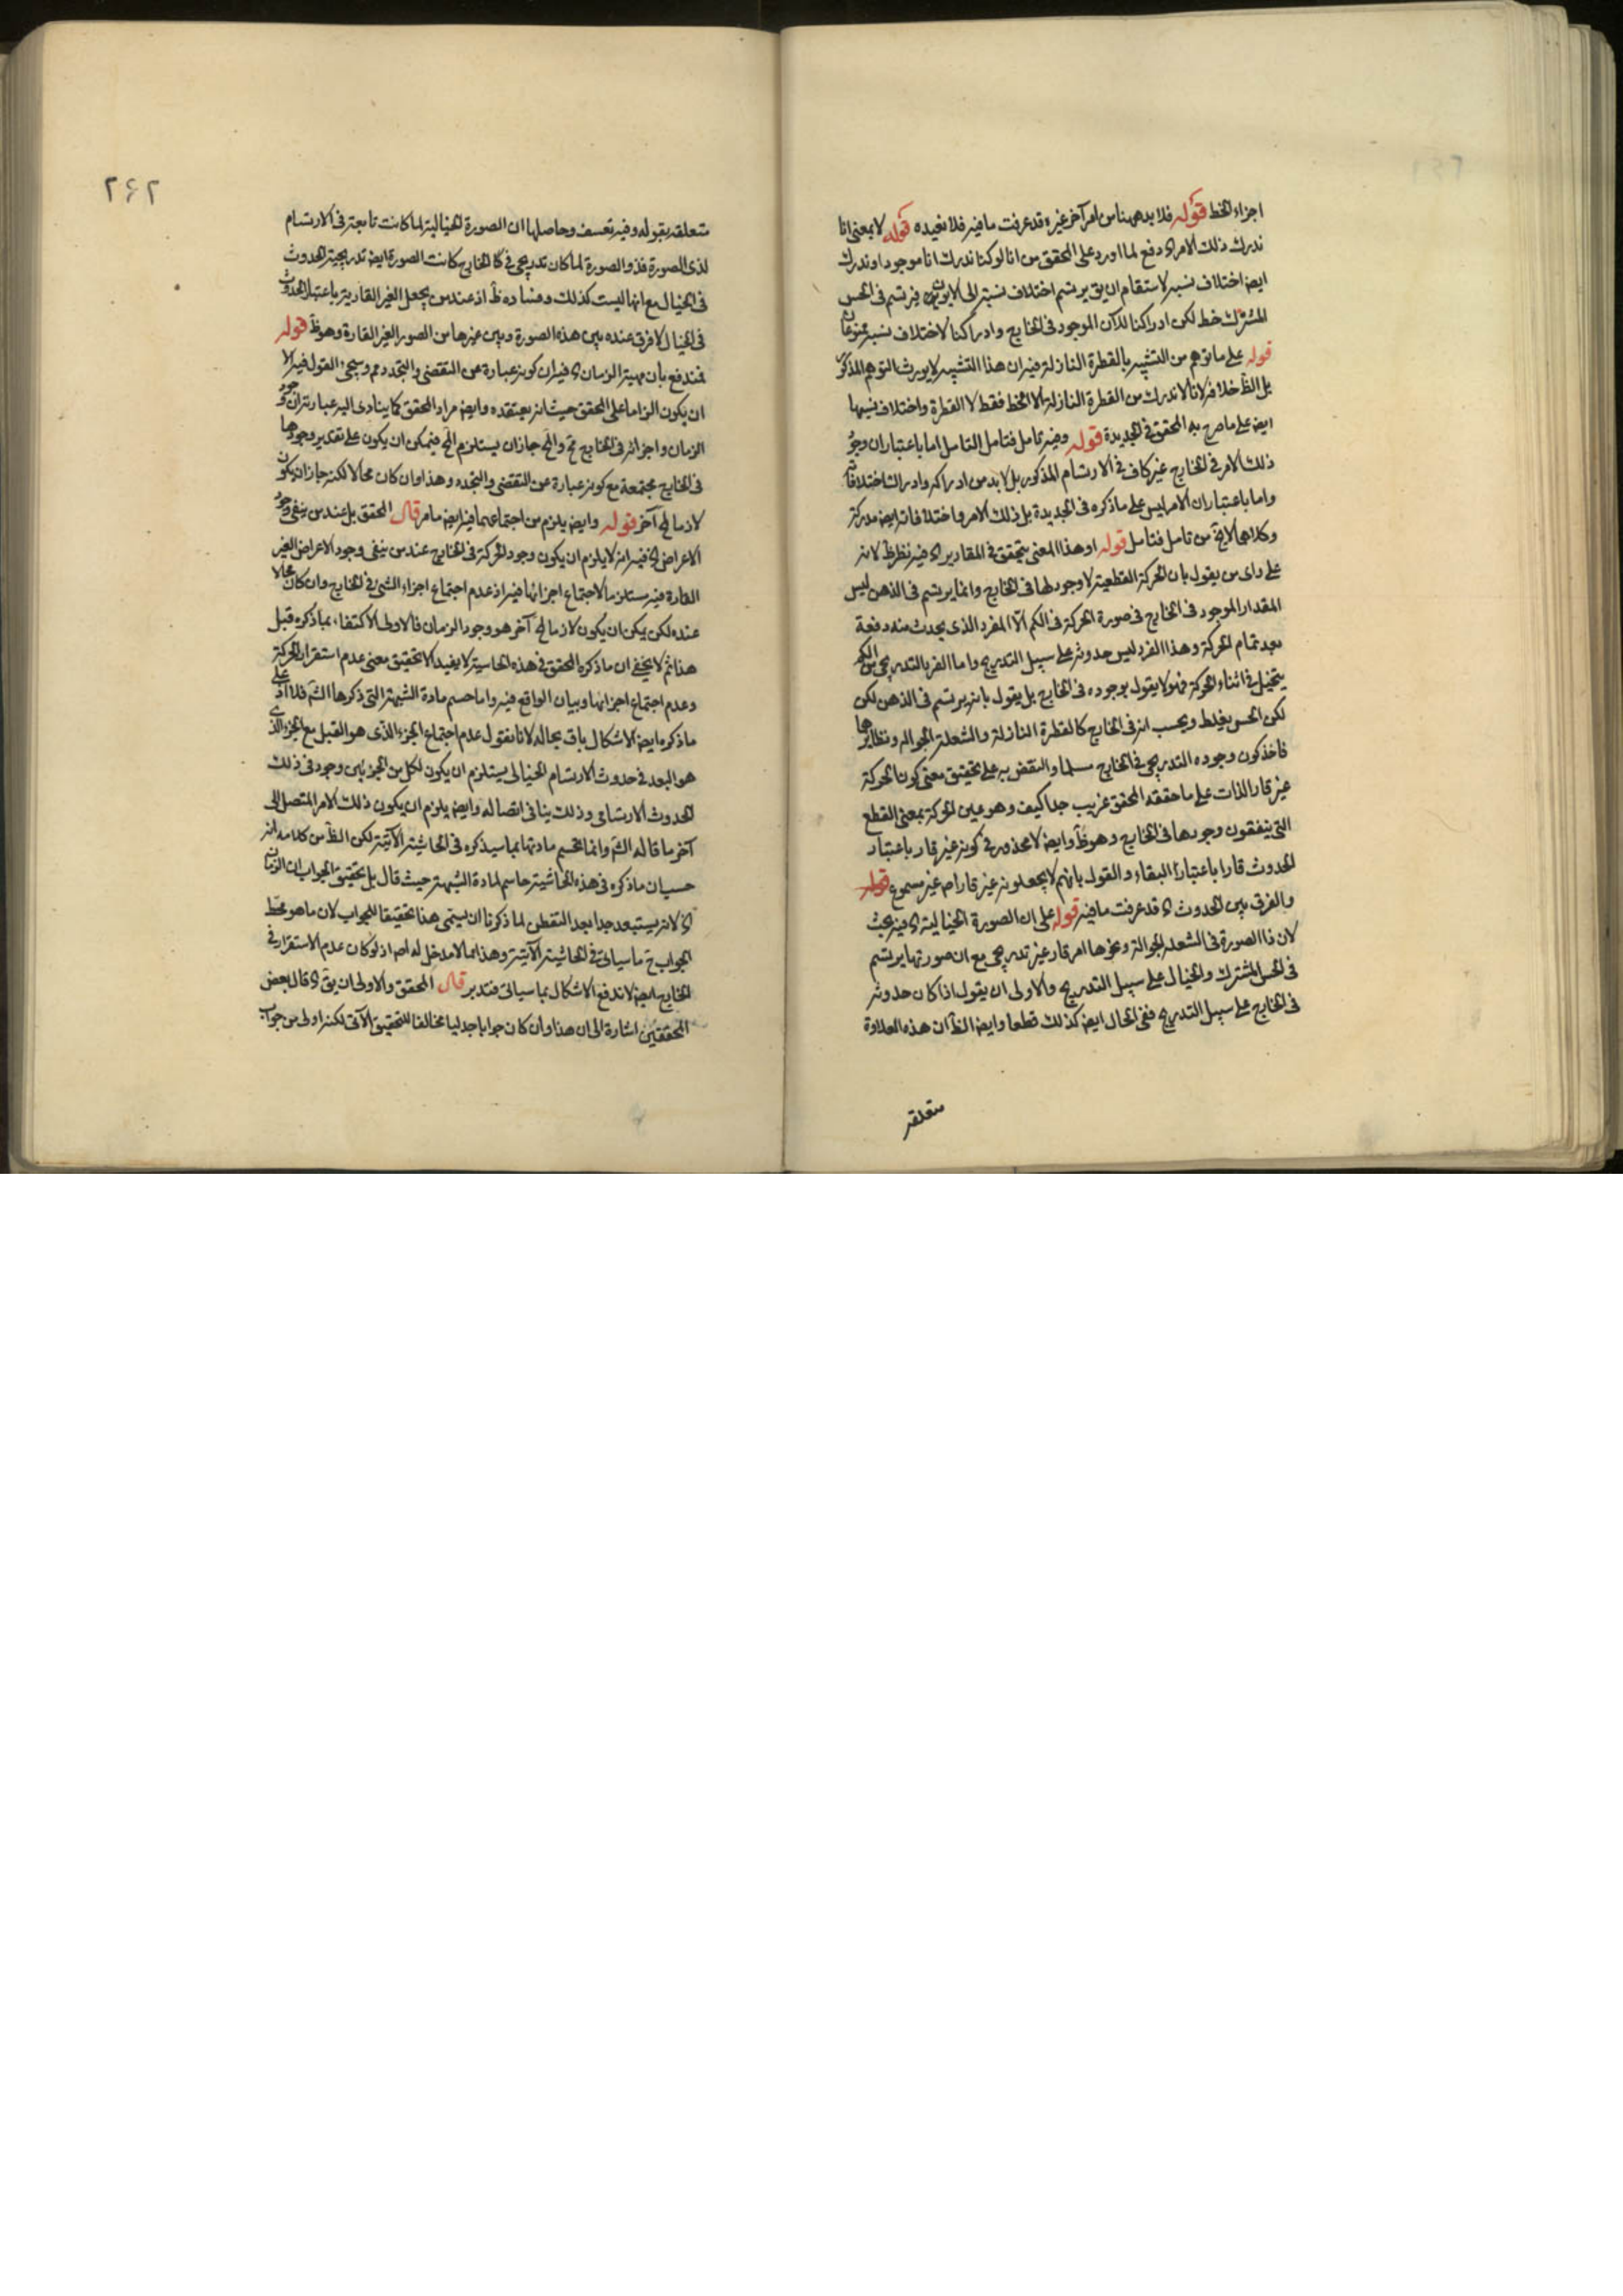 اجزاء الخط قوله فلا بد ههنا من امر آخر غيره قد عرفت ما فيه فلا نعيده قوله لا بمعنى انا
ندرك ذلك الامر اه دفع لما اورد على المحقق من انا لو كنا ندرك انا موجودا وندرك
ايضا اختلاف نسبه لاستقام ان يق يرتسم اختلاف نسبته الى فيرتسم فى الحس
المشترك خط لكن ادراكنا للآن الموجود فى الخارج وادراكنا لاختلاف نسبه ممنوعان
قوله على ما توهم من التشبيه بالقطرة النازلة فيه ان هذا التشبيه لا يورث التوهم المذكور
بل الظ خلافه لانا لا ندرك من القطرة النازلة الا الخط فقط لا القطرة واختلاف نسبها
ايضا على ما صرح به المحقق فى الجديدة قوله وفيه تامل فتامل التامل اما باعتبار ان وجود
ذلك الامر فى الخارج غير كاف فى الارتسام المذكور بل لا بد من ادراكه وادراك اختلافاته
واما باعتبار ان الامر ليس على ما ذكره فى الجديدة بل ذلك الامر واختلافاته ايضا مدركة
وكلاهما لا يخ من تامل فتامل قوله او هذا المعنى يتحقق فى المقادير اه فيه نظر ظ لانه
على راى من يقول بان الحركة القطعية لا وجود لها فى الخارج وانما يرتسم فى الذهن ليس
المقدار الموجود فى الخارج فى صورة الحركة فى الكم الا المفرد الذى يحدث منه دفعة
بعد تمام الحركة وهذا الفرد ليس حدوثه على سبيل التدريج واما الفرد التدريجى من الكم
يتخيل فى اثناء الحركة فهو لا يقول بوجوده فى الخارج بل يقول بانه يرتسم فى الذهن لكن
لكن الحس يغلط ويحسب انه فى الخارج كالقطرة النازلة والشعلة الجوالة ونظايرها
فاخذ كون وجوده التدريجى فى الخارج مسلما والنقض به على تحقيق معنى كون الحركة
غير قار الذات على ما حققه المحقق غريب جدا كيف وهو عين الحركة بمعنى القطع
التى ينفقون وجودها فى الخارج وهو ظ وايضا لا محذور فى كونه غير قار باعتبار
الحدوث قارا باعتبار البقاء والقول بانهم لا يجعلونه غير قار اصم غير مسموع قوله
والفرق بين الحدوث اه قد عرفت ما فيه قوله على ان الصورة الخيالية اه فيه بحث
لان ذا الصورة فى الشعلة الجوالة ونحوها امر قار غير تدريجى مع ان صورتها يرتسم
فى الحس المشترك والخيال على سبيل التدريج والاولى ان يقول اذا كان حدوثه
فى الخارج على سبيل التدريج ففى الخال ايضا كذلك قطعا وايضا الظ ان هذه العلاوة
متعلقه
٢٦٢
متعلقه بقوله وفيه تعسف وحاصلها ان الصورة الخيالية لما كانت تابعة فى الارتسام
لذى الصورة فذو الصورة لما كان تدريجى فى الخارج كانت الصورة ايضا تدريجية الحدوث
فى الخيال مع انها ليست كذلك وفساده ظ اذ عند من يجعل الغير القارية باعتبار الحدوث
فى الخيال لا فرق عنده بين هذه الصورة وبين غيرها من الصور الغير القارة وهو ظ قوله
فمندفع بان مهية الزمان اه فيه ان كونه عبارة عن التقضى والتجدد مم وسيجئ القول فيه الا
ان يكون الزاما على المحقق حيث انه يعتقده وايضا مراد المحقق كما ينادى اليه عبارته ان وجود
الزمان واجزائه فى الخارج مح والمح جاز ان يستلزم المح فيمكن ان يكون على تقدير وجودها
فى الخارج مجتمعة مع كونه عبارة عن التقضى والتجدد وهذا وان كان محالا لكنه جاز ان يكون
لازما لمح آخر قوله وايضا يلزم من اجتماعهما فيه ايضا ما مر قال المحقق بل عند من ينفى وجود
الاعراض اه فيه انه لا يلزم ان يكون وجود الحركة فى الخارج عند من ينفى وجود الاعراض الغير
القارة فيه مستلزما لاجتماع اجزائها فيه اذ عدم اجتماع اجزاء الشئ فى الخارج وان كان محالا
عنده لكن يمكن ان يكون لازما لمح آخر هو وجود الزمان فالاولى الاكتفاء بما ذكره قبل
هذا ثم لا يخفى ان ما ذكره المحقق فى هذه الحاشية لا يفيد الا تحقيق معنى عدم استقرار الحركة
وعدم اجتماع اجزائها وبيان الواقع فيه واما حسم مادة الشبهة التى ذكرها الش فلا اذ على
ما ذكره ايضا الاشكال باق بحاله لانا نقول عدم اجتماع الجزء الذى هو القبل مع الجزء الذى
هو البعد فى حدوث الارتسام الخيالى يستلزم ان يكون لكل من الجزئين وجود فى ذلك
الحدوث الارتسامى وذلك ينافى اتصاله وايضا يلزم ان يكون ذلك الامر المتصل الى
آخر ما قاله الش وانما تحسم مادتها بما سيذكره فى الحاشية الآتية لكن الظ من كلامه انه
حسب ان ما ذكره فى هذه الحاشية حاسم لمادة الشبهة حيث قال بل تحقيق الجواب ان الزمان
اه لانه يستبعد جدا بعد التفطن لما ذكرنا ان يسمى هذا تحقيقا للجواب لان ما هو محط
الجواب ح ما سياتى فى الحاشية الآتية وهذا مما لا مدخل له اصم اذ لو كان عدم الاستقرار فى
الخارج ايضا لاندفع الاشكال بما سياتى فتدبر قال المحقق والاولى ان يق اه قال بعض
المحققين اشارة الى ان هذا وان كان جوابا جدليا مخالفا للتحقيق الآتى لكنه اولى من جواب